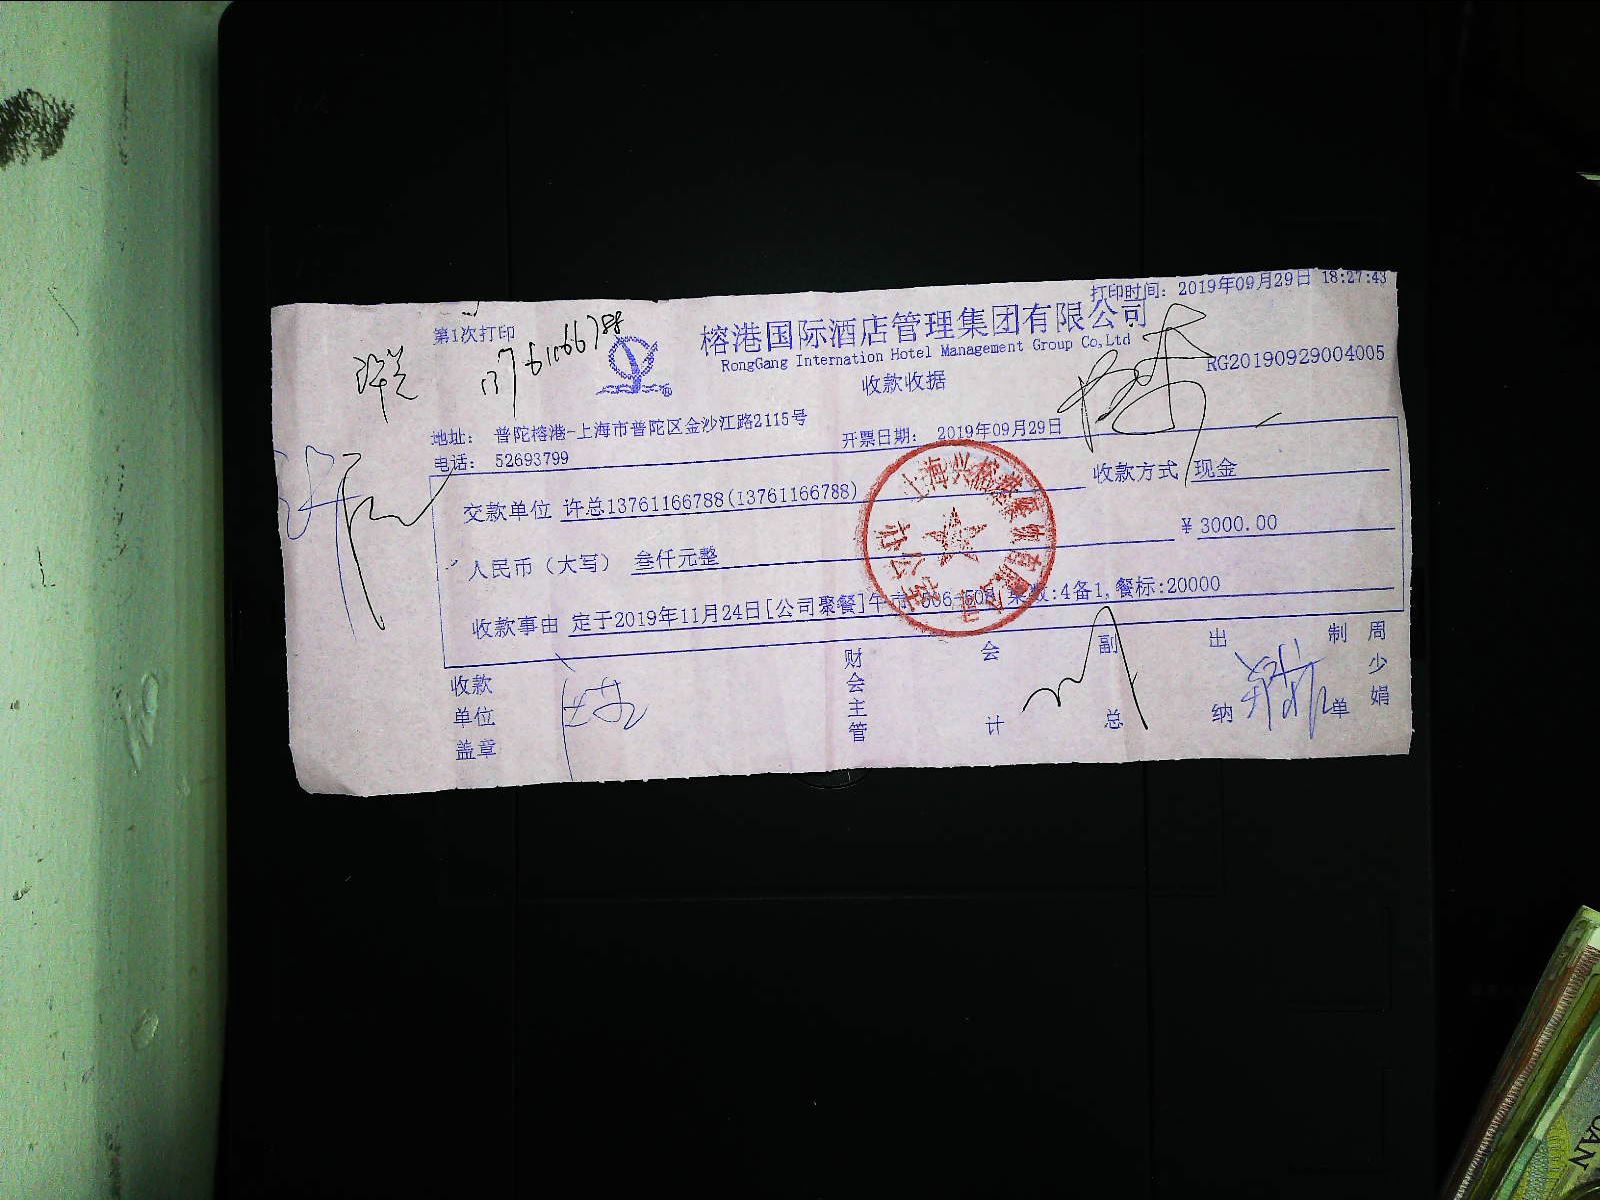 打印时间: 2019年09月29日 18:27:43
第1次打印
13761166788
榕港国际酒店管理集团有限公司
RongGang Internation Hotel Management Group Co,Ltd
收款收据
RG20190929004005
地址: 普陀榕港-上海市普陀区金沙江路2115号
开票日期: 2019年09月29日
电话: 52693799
交款单位 许总13761166788(13761166788) 收款方式 现金
人民币(大写) 叁仟元整 ¥ 3000.00
收款事由 定于2019年11月24日[公司聚餐]午 桌数:4备1,餐标:20000
收款单位盖章 财会主管 会计 副总 出纳 制单 周少娟